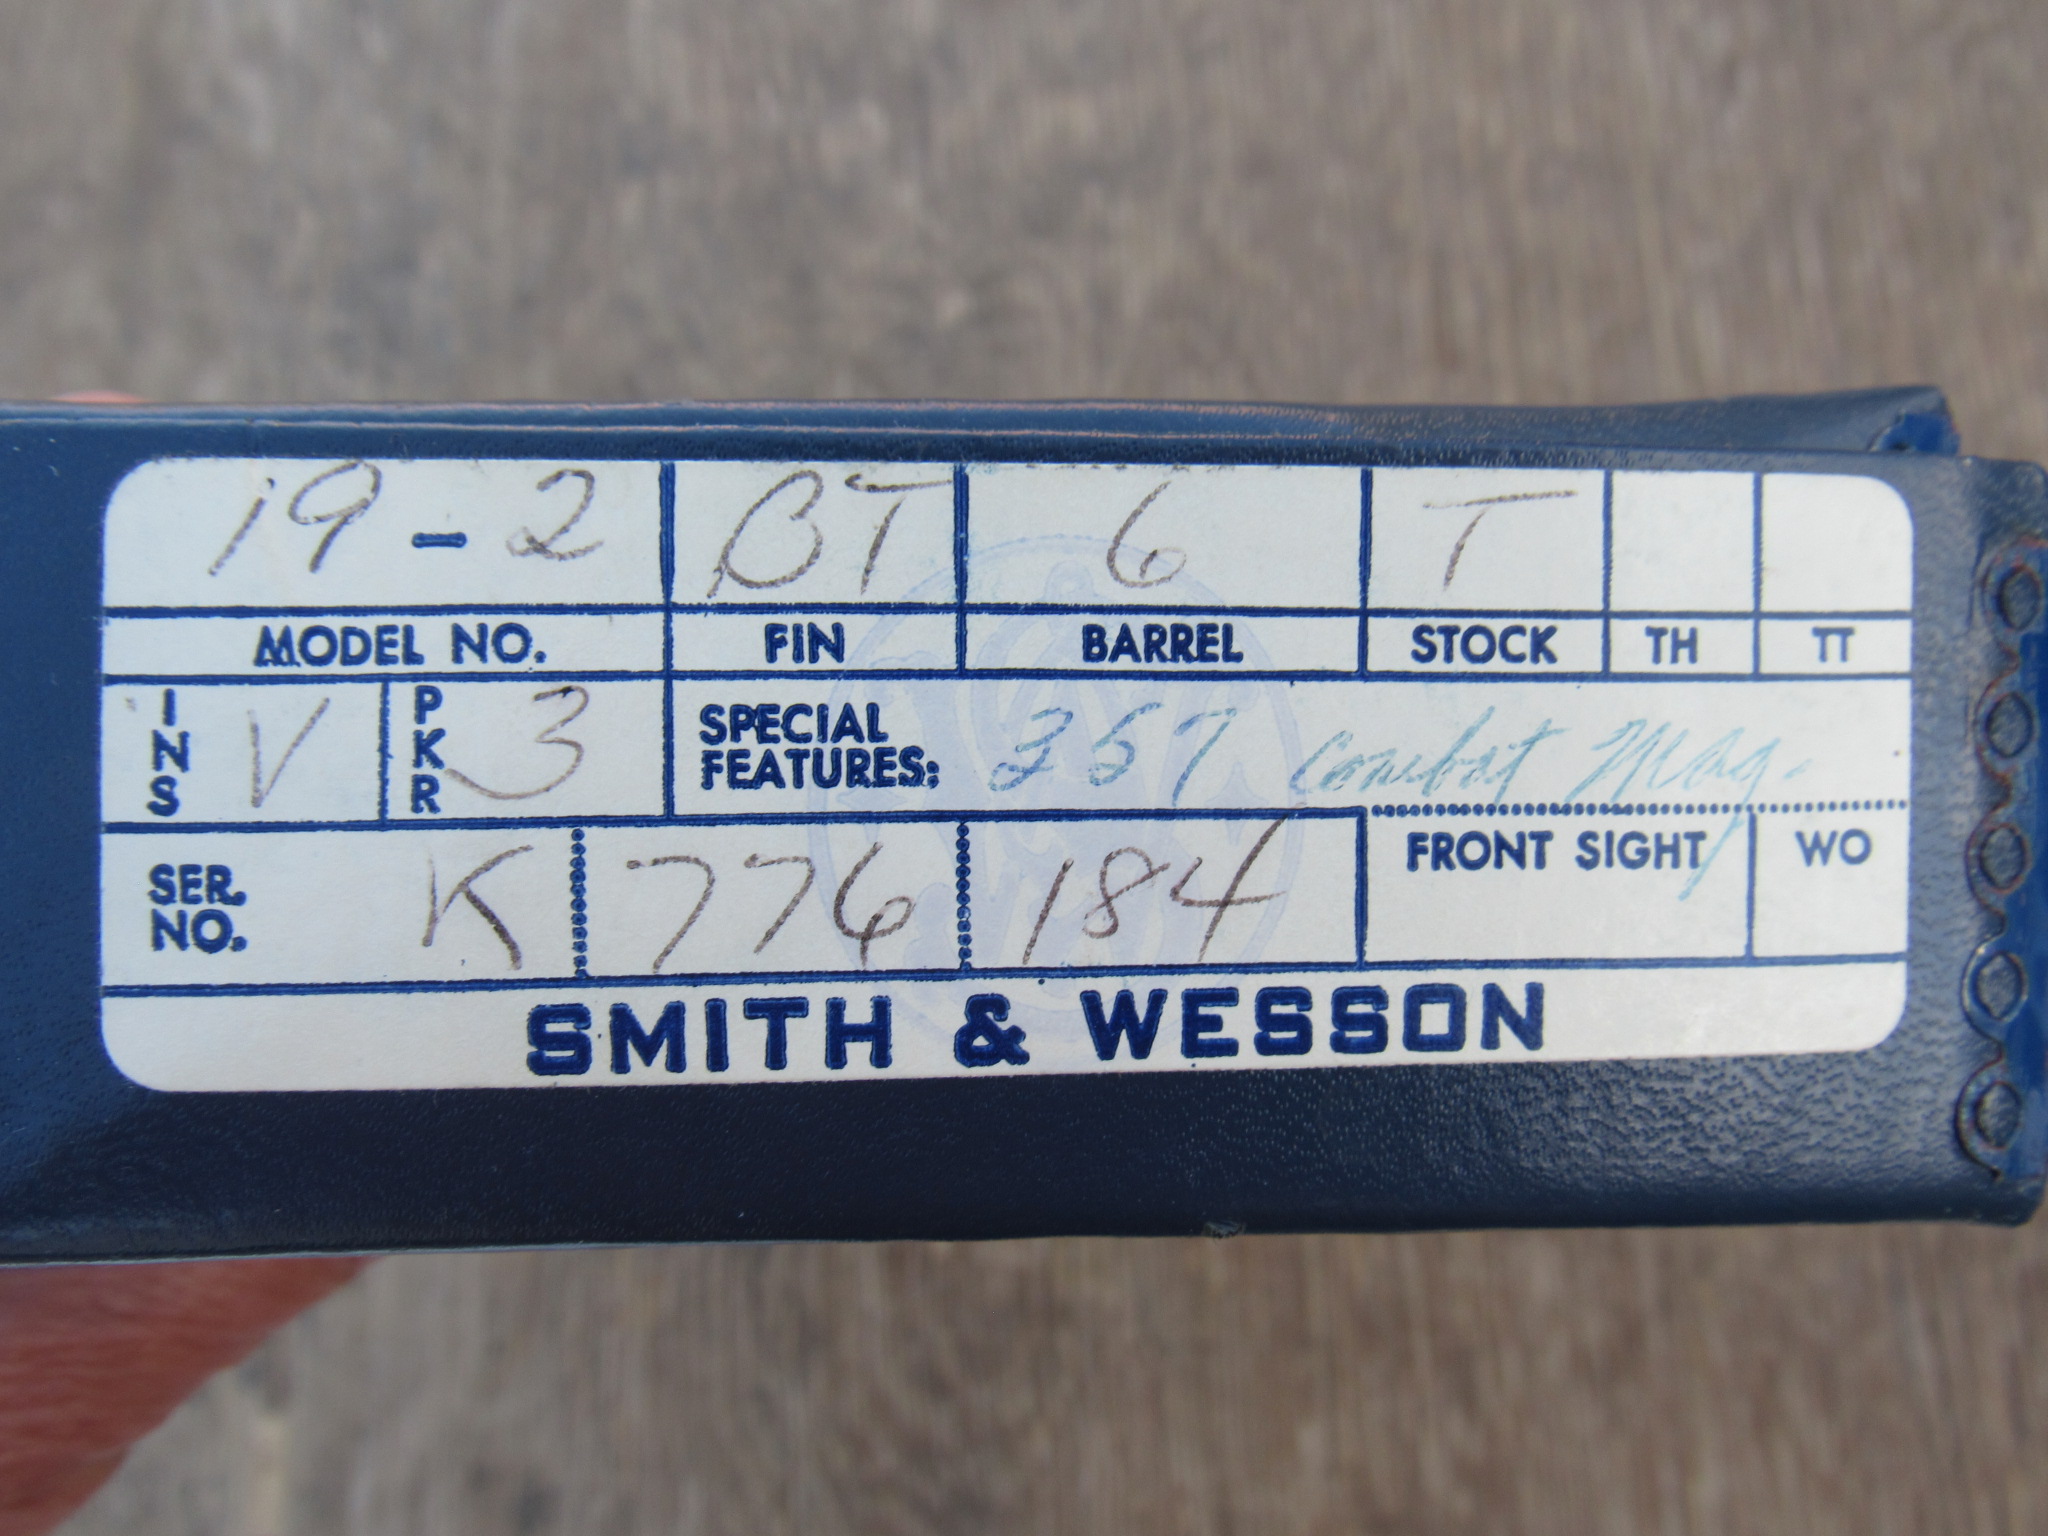 19-2 BT 6 T
MODEL NO. FIN BARREL STOCK TH TT
INS V PKR 3 SPECIAL FEATURES: 357 Combat Mag.
SER. NO. K 776 184 FRONT SIGHT WO
SMITH & WESSON